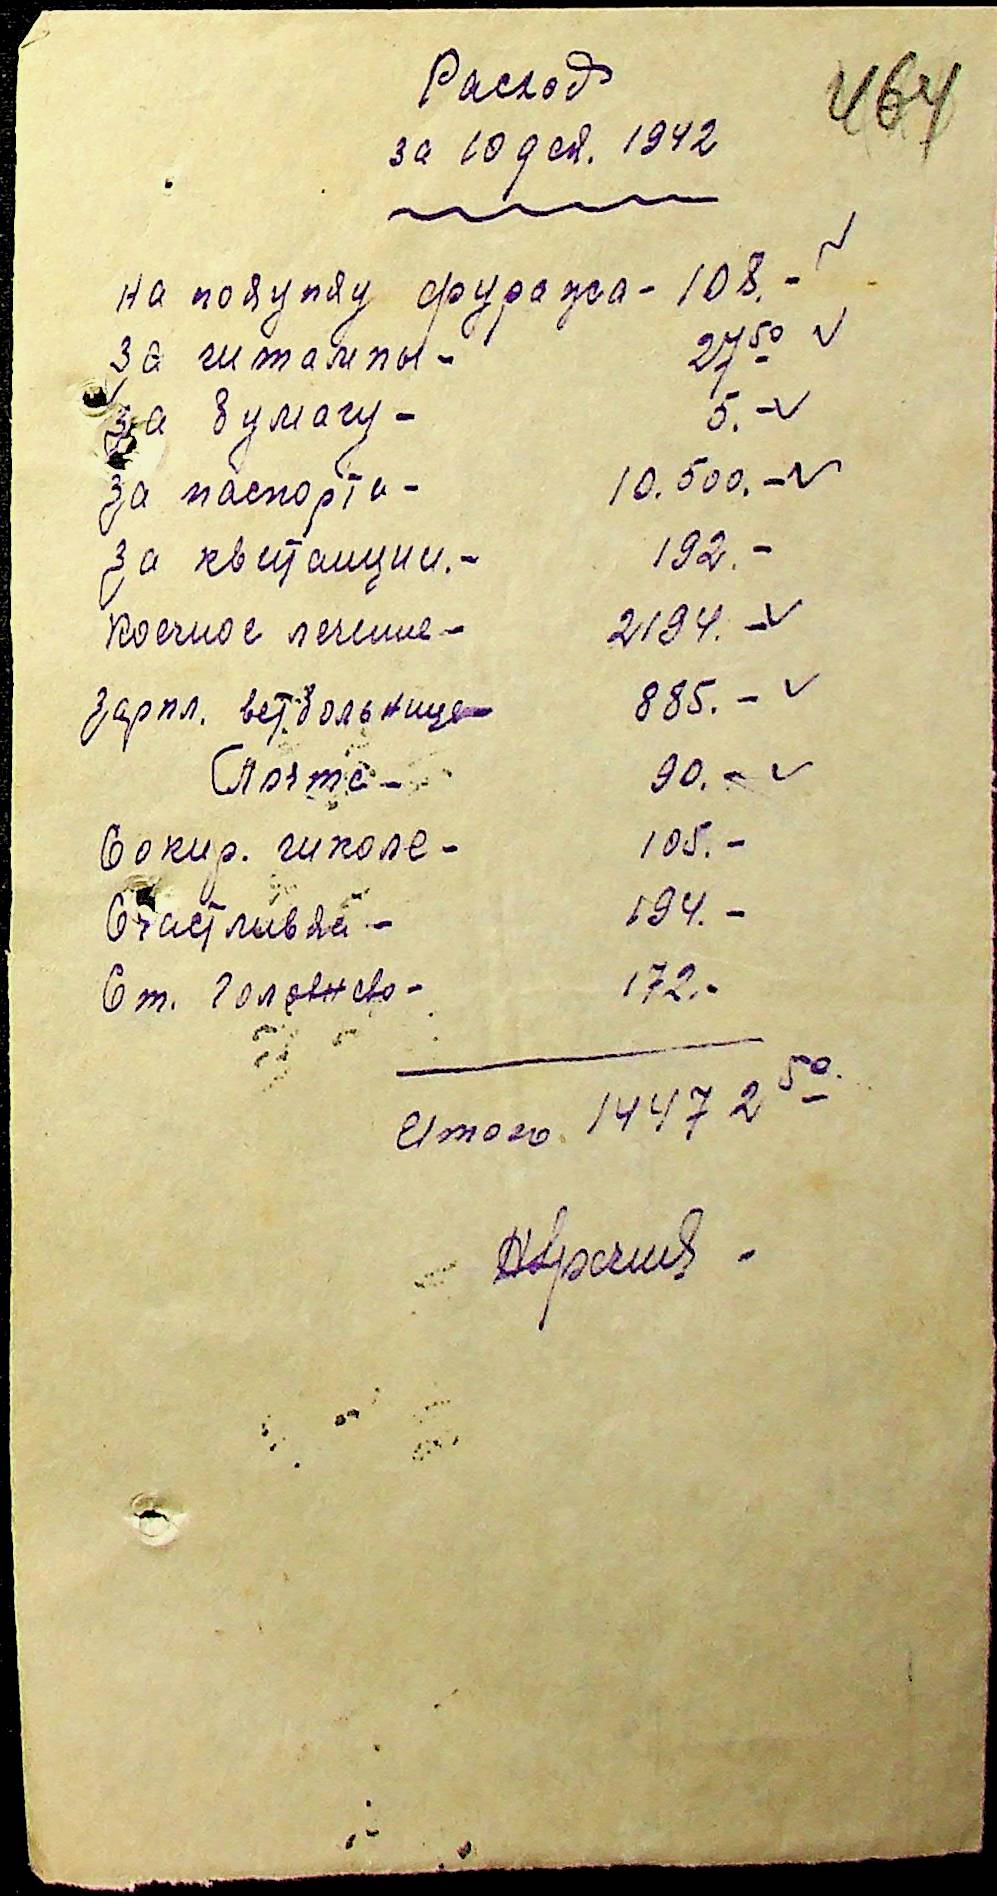 464
Расход
за 10 дек. 1942
на покупку фуража - 108. -
За штампы - 27 50
За бумагу - 5. -
За паспорта - 10.500. -
За квитанции. - 192. -
Коечное лечение - 2194. -
Зарпл. ветбольнице - 885. -
Почте - 90. -
Сокир. школе - 105. -
Счастливка - 194. -
Ст. Головнево - 172. -
Итого 14472 50